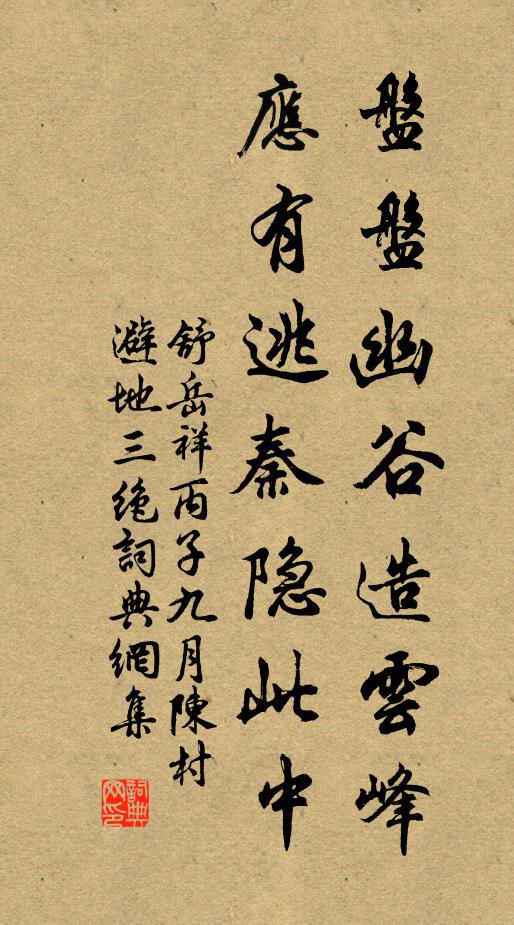 盤盤幽谷造雲峰
應有逃秦隐此中
舒岳祥丙子九月陳村
避地三絶詞典網集
詞典
网印